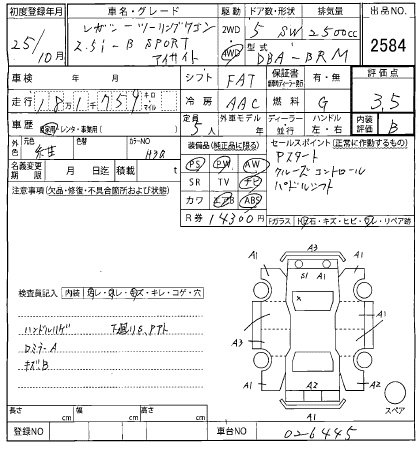 初度登録年月 車名・グレード 駆動 ドア数・形状 排気量 出品NO.
25/10月 レガシーツーリングワゴン 2WD 4WD 5 SW 2500cc 2584
2.5i-B SPORT 型式 DBA-BRM
アイサイト
車検 年 月 シフト FAT 保証書 有・無 評価点
走行 181千759 キロ マイル 冷房 AAC 燃料 G 3.5
車歴 自家用・レンタ・事業用( ) 定員 5人 外車モデル 年 ディーラー 並行 ハンドル 左・右 内装評価 B
外色 元色 色替 カラーNO H3Q
装備品(純正品に限る) セールスポイント(正常に作動するもの)
名義変更期限 月 日迄 積載 t
PS PW AW Pスタート
SR TV ナビ クルーズコントロール
カワ エアB ABS パドルシフト
注意事項(欠品・修復・不具合箇所および状態)
R券 14300円 Fガラス
検査員記入 内装
・キレ・コゲ・穴
A3
A1 S1 A1 A1
A1 X A1
A3 A1
A1 A2 A2
A1
スペア
ハンドルハゲ 下廻りS.Pサト
ロミラーA
キズB
長さ cm 幅 cm 高さ cm
登録NO 車台NO 02-6445